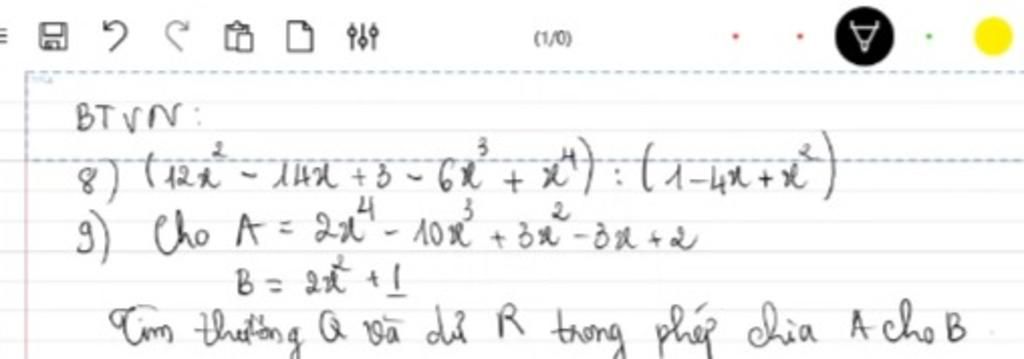 (1/0)
BTVN:
8) (12x² - 14x + 3 - 6x³ + x⁴) : (1 - 4x + x²)
9) Cho A = 2x⁴ - 10x³ + 3x² - 3x + 2
B = 2x² + 1
Tìm thương Q và dư R trong phép chia A cho B